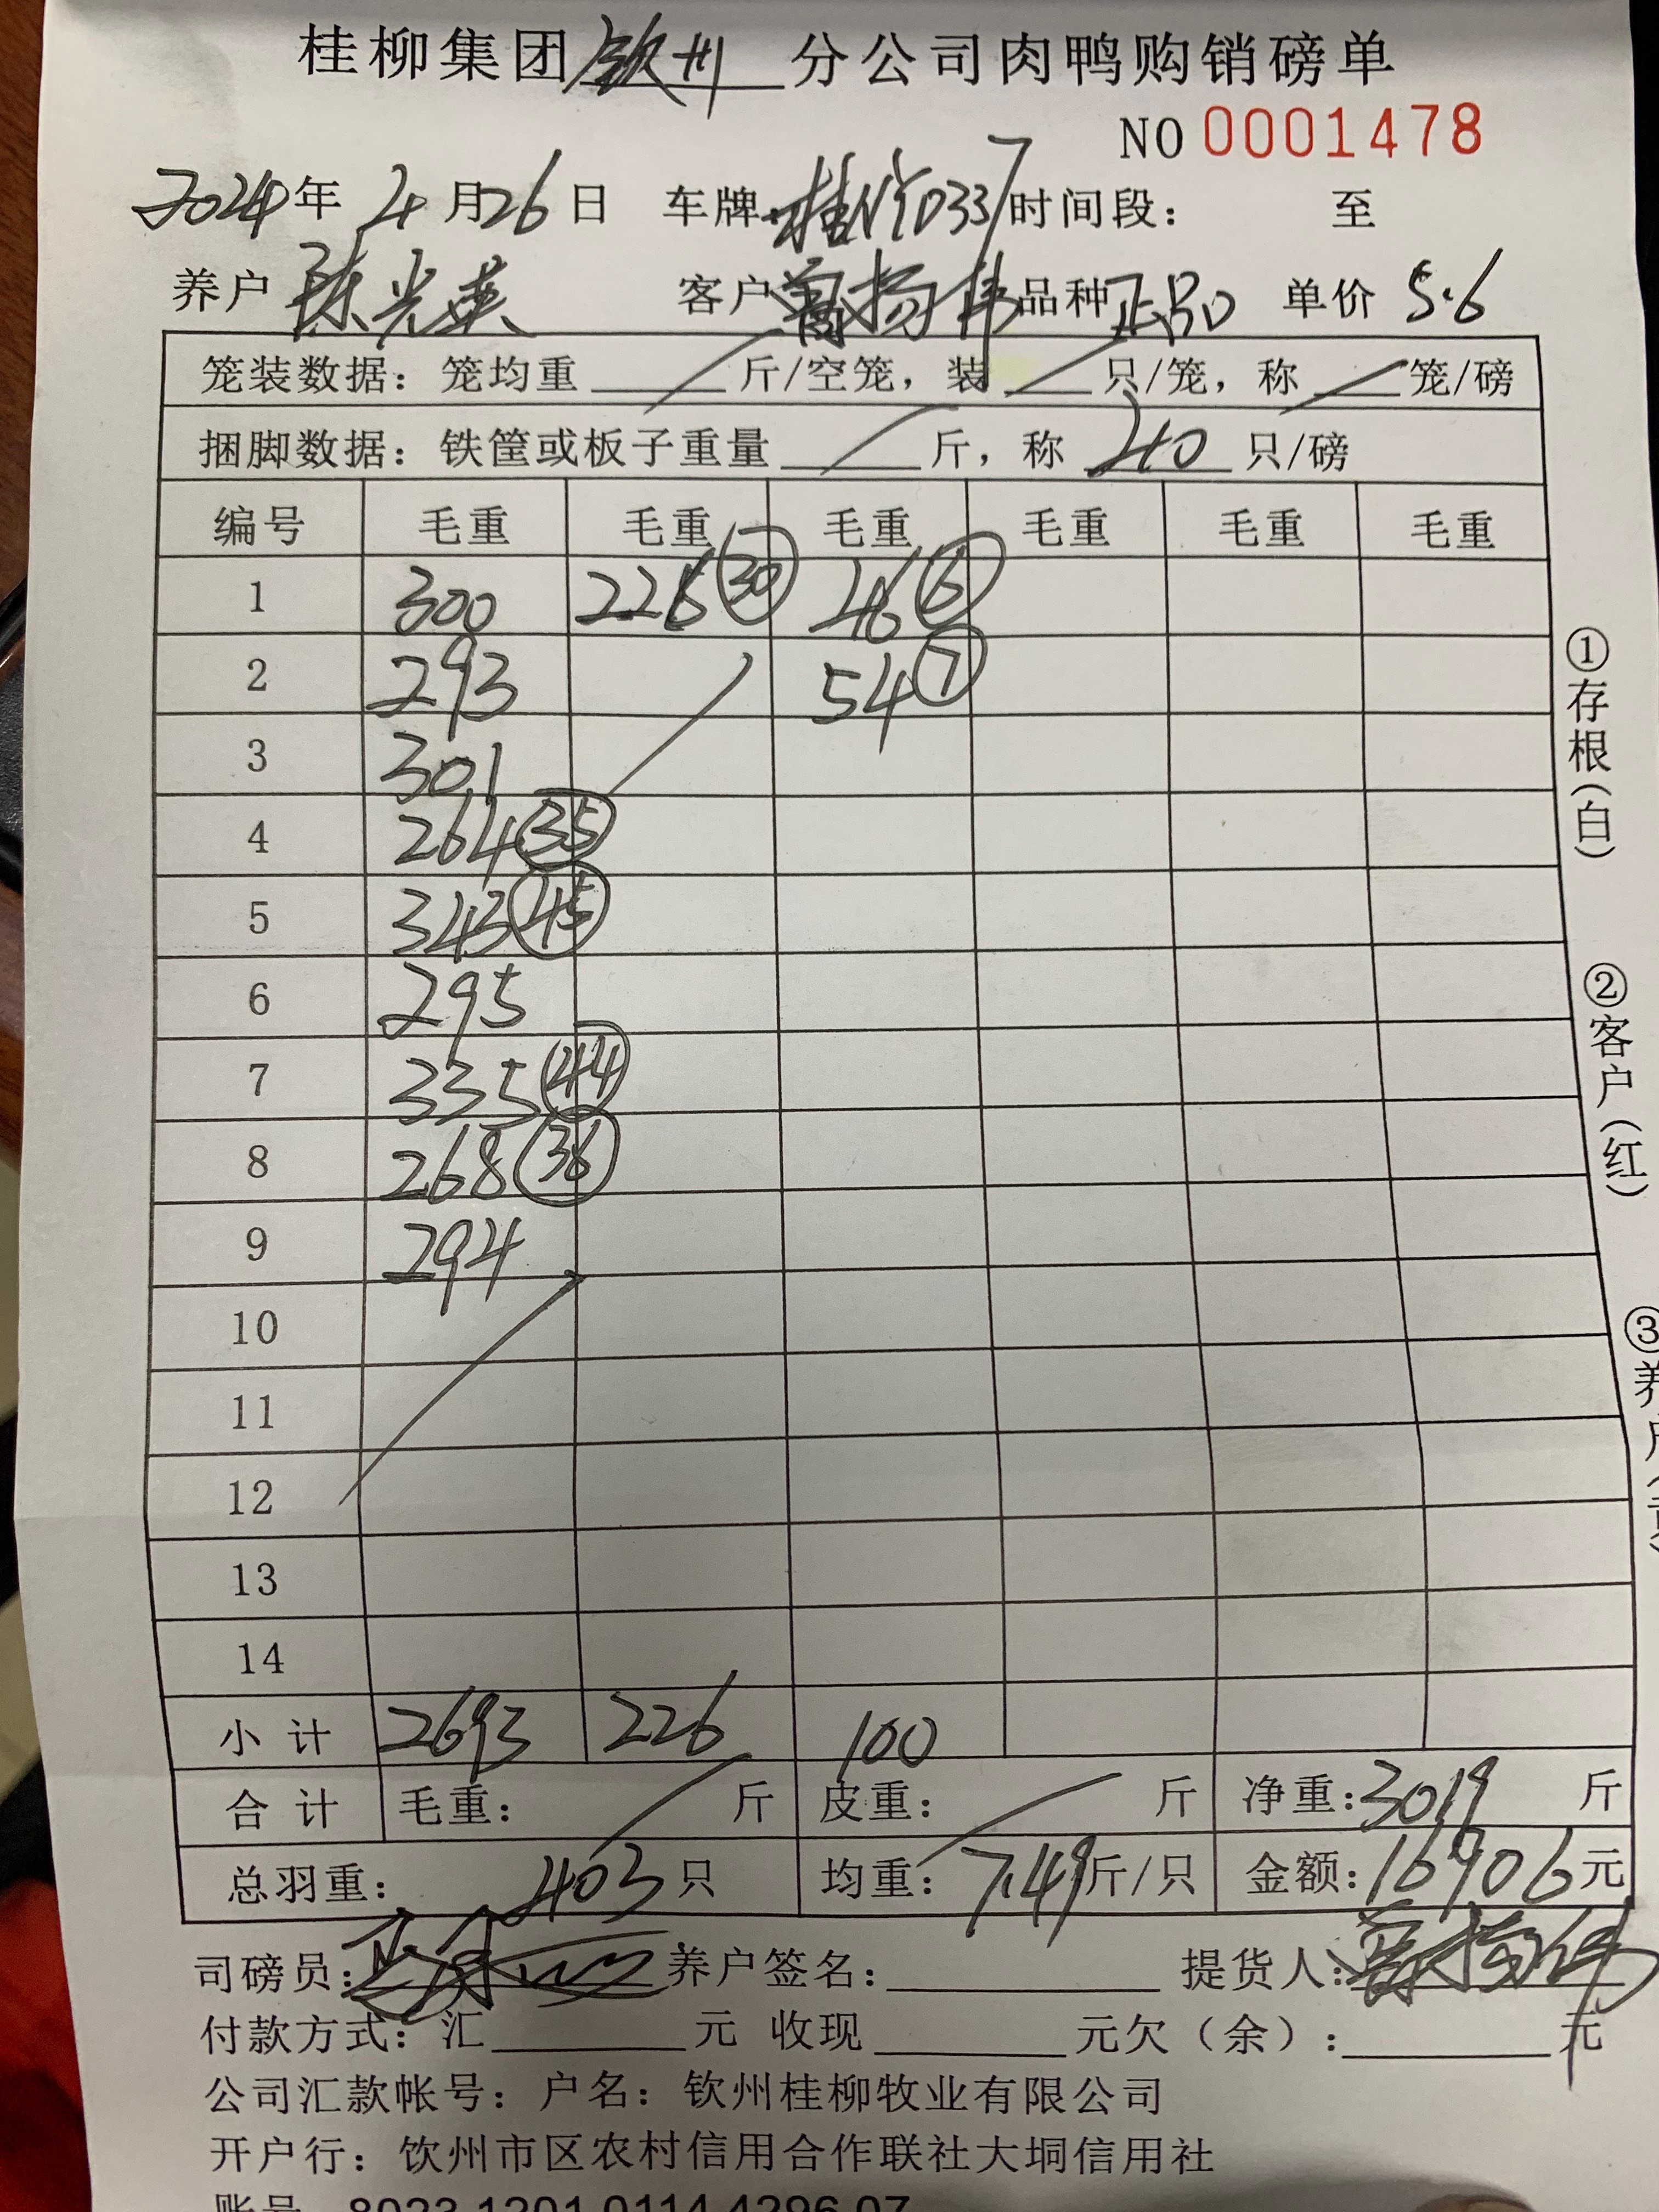 桂柳集团钦州分公司肉鸭购销磅单
NO 0001478
2024年 4月26日 车牌:桂 D3377 时间段: 至
养户 陈光英 客户 曾扬伟 品种 正品 单价 5.6
笼装数据: 笼均重 斤/空笼, 装 只/笼, 称 笼/磅
捆脚数据: 铁筐或板子重量 斤, 称 40 只/磅
编号 毛重 毛重 毛重 毛重 毛重 毛重
1 300 226 30 46 6
2 293 54 7
3 301
4 264 35
5 343 45
6 295
7 335 44
8 268 36
9 294
10
11
12
13
14
小计 2693 226 100
合计 毛重: 斤 皮重: 斤 净重:3019 斤
总羽重: 403只 均重: 7.49斤/只 金额:16906元
司磅员: 养户签名: 提货人:曾扬伟
付款方式: 汇 元 收现 元欠(余): 元
公司汇款帐号: 户名: 钦州桂柳牧业有限公司
开户行: 钦州市区农村信用合作联社大垌信用社
账号 8023 1201 0114 4296 07
①存根(白)
②客户(红)
③养户